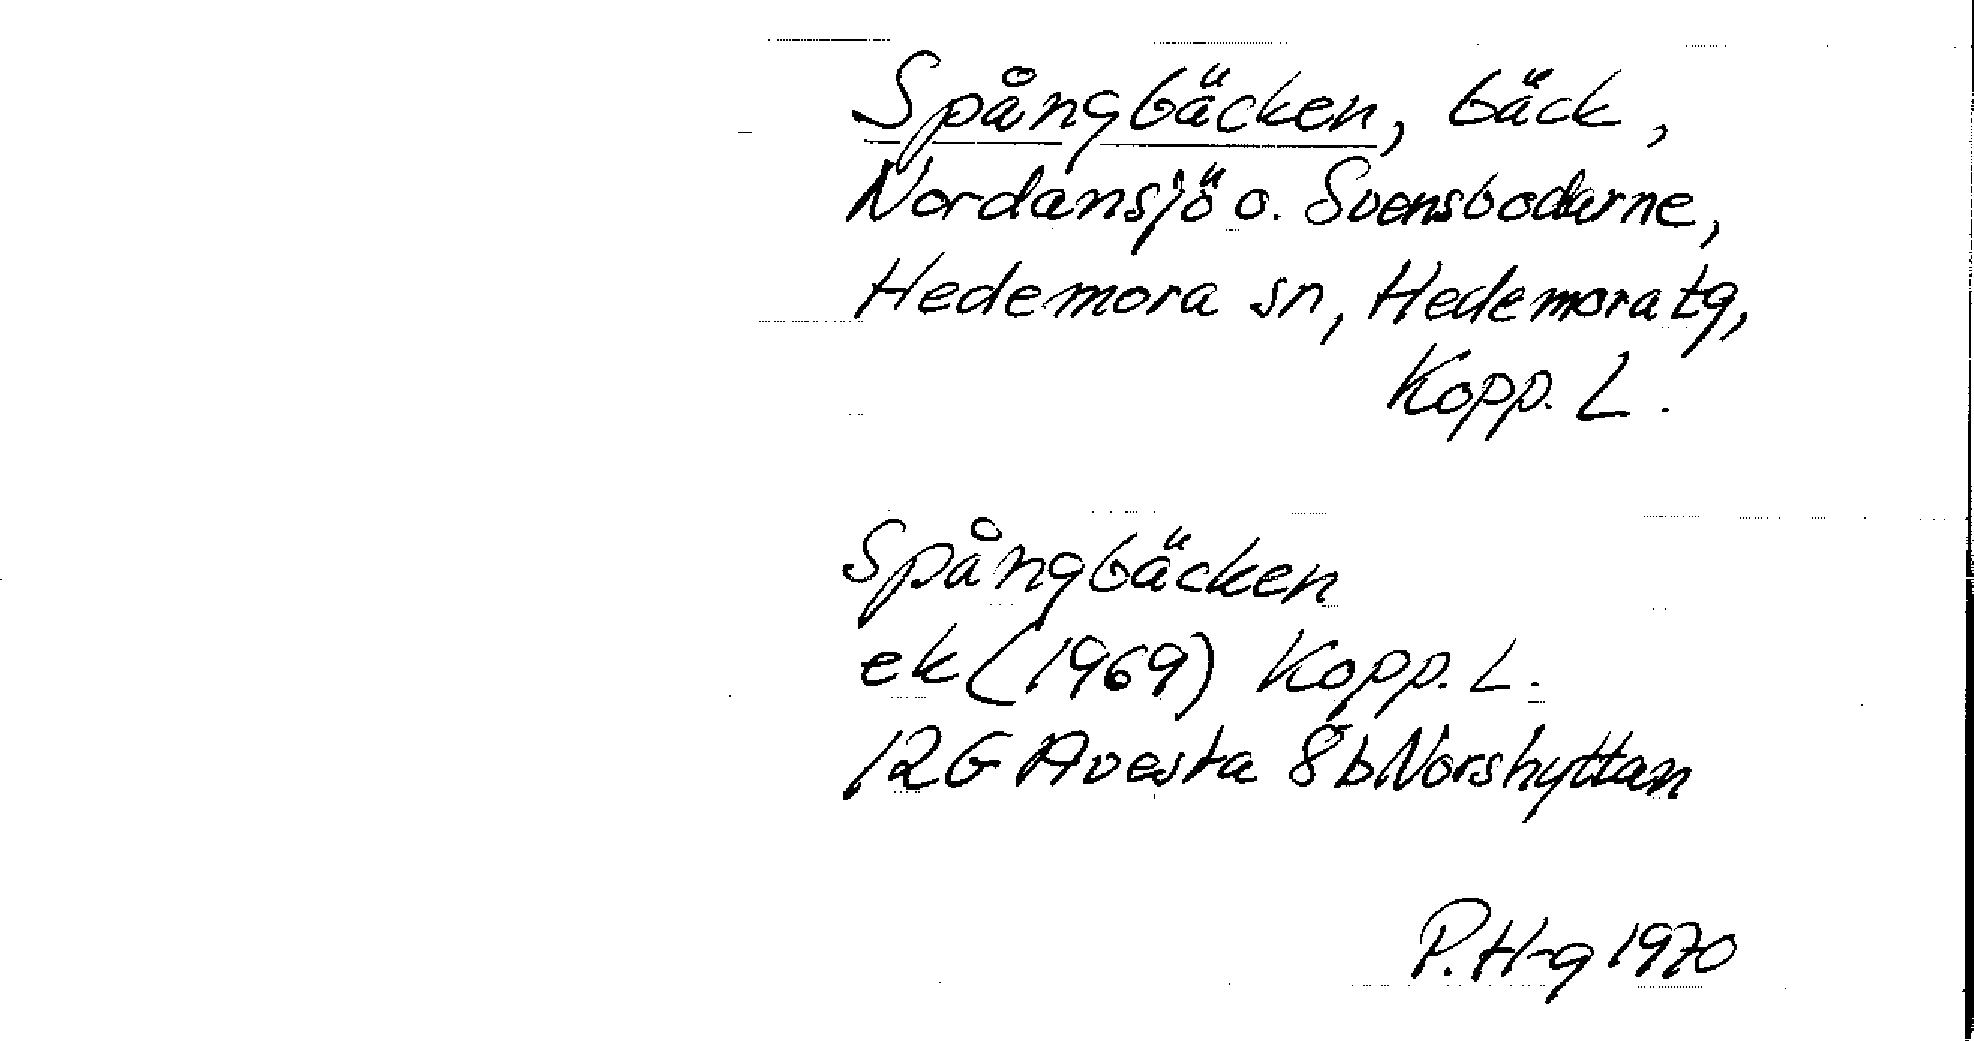 Spångbäcken, bäck,
Nordansjö o. Svensbodarne,
Hedemora sn, Hedemora tg,
Kopp. L.
Spångbäcken
ek (1969) Kopp. L.
12G Avesta 8b Norshyttan
P. H-g 1970